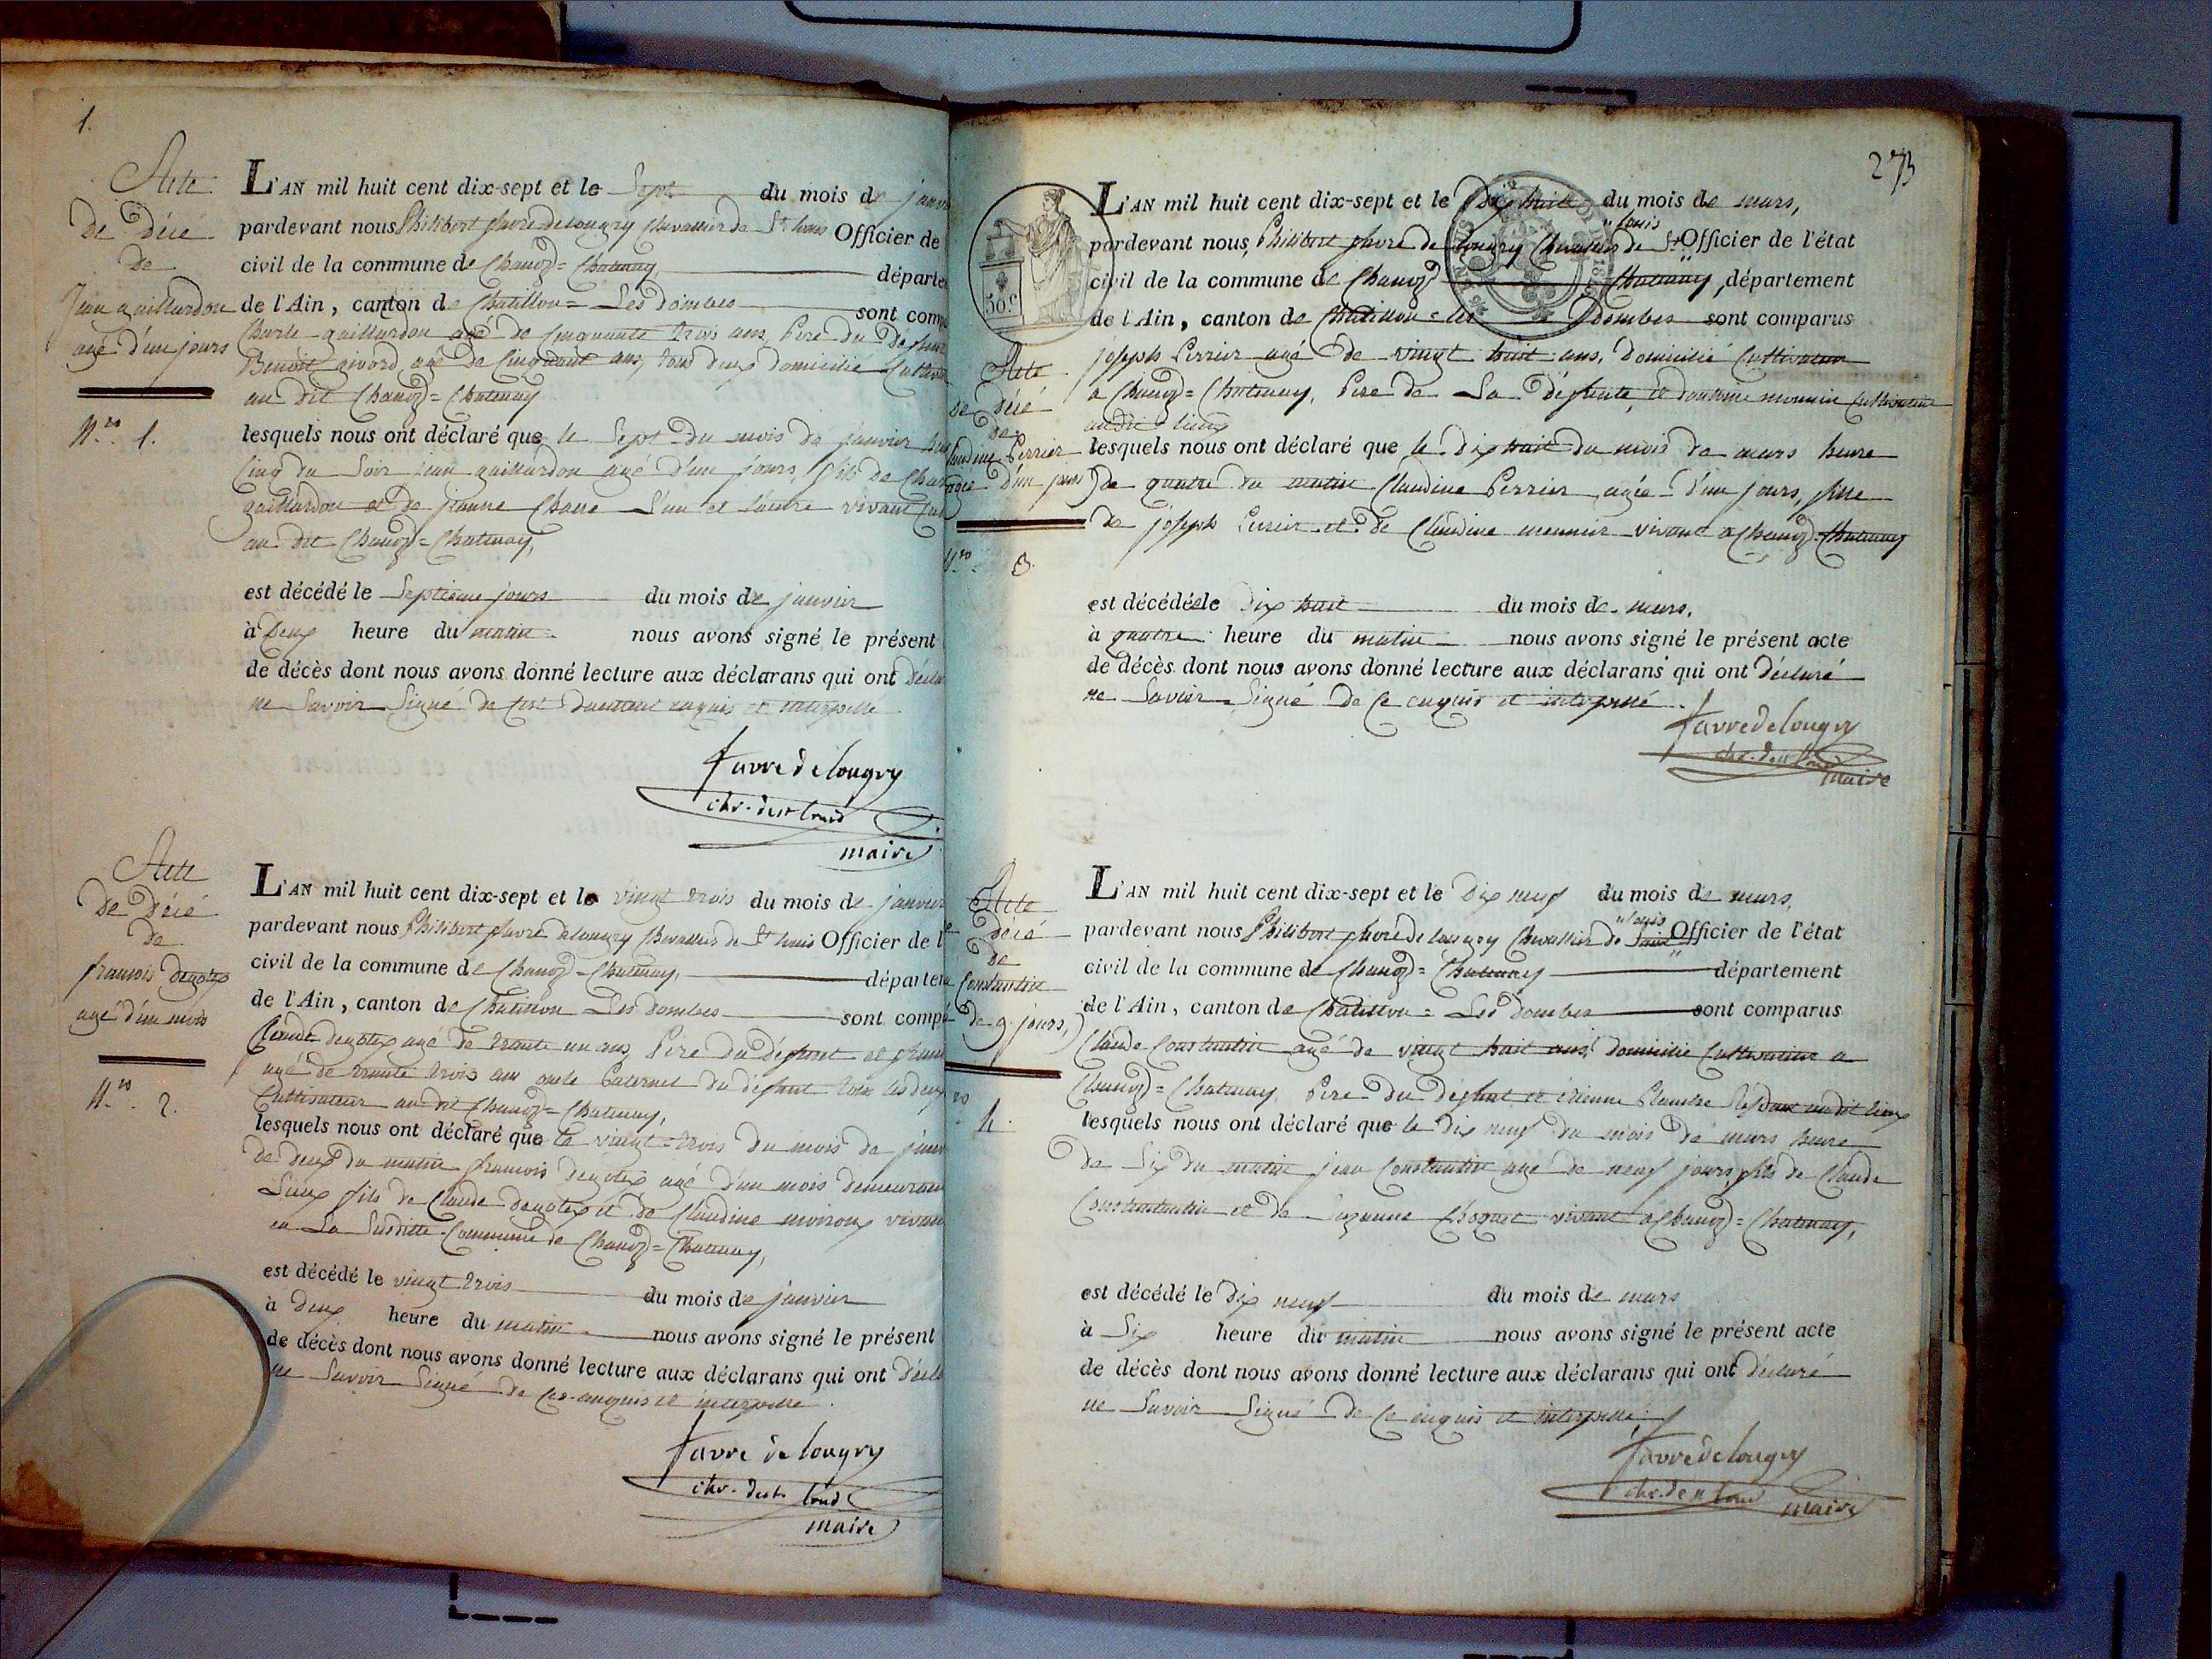 1.
Acte
de décé
de
jean gaillardon
agé d'un jours
N.ro 1.
L'AN mil huit cent dix-sept et le Sept du mois de janvi
pardevant nous Philibert favre de longry chevallier de St louis Officier de
civil de la commune de Chanoz=Chatenay, départe
de l'Ain, canton de Chatillon=Les dombes sont comp
Charle gaillardon agé de Cinquante trois ans, Pere du Défunt
Benoit givord agé de Cinquante ans, tous deux domicilié Cultiva
au dit Chanoz=Chatenay
lesquels nous ont déclaré que le Sept du mois de janvier heu
Cinq du Soir jean gaillardon agé d'un jours, fils de Char
gaillardon et de jeanne Chane L'un et l'autre vivant
au dit Chanoz=Chatenay,
est décédé le Septieme jours du mois de janvier
à Deux heure du matin nous avons signé le présent
de décès dont nous avons donné lecture aux déclarans qui ont Décla
ne Savoir Signé de duement enquis et interpellé
favre de longry
chr. de st louis
maire
Acte
de décé
de
francois degotex
agé d'un mois
N.ro 2.
L'AN mil huit cent dix-sept et le vingt trois du mois de janvier
pardevant nous Philibert favre de longry Chevallier de St louis Officier de l'é
civil de la commune de Chanoz=Chatenay, départem
de l'Ain, canton de Chatillon Les dombes sont compa
Claude degotex agé de trente un ans, Pere du Défunt et fran
agé de trente trois ans oncle Paternel du défunt tous les deux
Cultivateur au dit Chanoz=Chatenay,
lesquels nous ont déclaré que le vingt=trois du mois de janv
de deux du matin francois degotex agé d'un mois demeurant
Lieux fils de Claude degotex et de Claudine moiroux vivan
en La Susditte Commune de Chanoz=Chatenay,
est décédé le vingt trois du mois de janvier
à deux heure du matin nous avons signé le présent
de décès dont nous avons donné lecture aux déclarans qui ont Décla
ne Savoir Signé de Ces enquis et interpellé.
favre de longry
chr. de st louis
maire
273
50.c
L'AN mil huit cent dix-sept et le Dix huit du mois de mars,
pardevant nous, Philibert favre de longry Chevallier de St "louis Officier de l'état
civil de la commune de Chanoz Chatenay, département
de l'Ain, canton de Chatillon=les Dombes sont comparus
joseph Perrier agé de vingt huit ans, Domicilié Cultivateur
a Chanoz=Chatenay, Pere de La défunte, et monnier Cultivateur
audit lieux
lesquels nous ont déclaré que le dix huit du mois de mars heure
de quatre du matin Claudine Perrier, agée d'un jours, fille
de joseph Perrier et de Claudine monnier vivant a Chanoz=Chatenay
Acte
de décé
de
Claudine Perrier
agée d'un jours
N.ro 3.
est décédée le Dix huit du mois de mars,
à quatre heure du matin nous avons signé le présent acte
de décès dont nous avons donné lecture aux déclarans qui ont Déclaré
ne Savoir Signé de Ce enquis et interpellé.
favre de longry
chr. de st louis
maire
Acte
décé
de
Constantin
de 9. jours,
4.
L'AN mil huit cent dix-sept et le Dix neuf du mois de mars,
pardevant nous Philibert favre de longry Chevallier de Saint "louis Officier de l'état
civil de la commune de Chanoz=Chatenay département
de l'Ain, canton de Chatillon=Les Dombes sont comparus
Claude Constantin agé de vingt huit ans, Domicilié Cultivateur a
Chanoz=Chatenay, Pere du défunt et étienne Planche audit lieux
lesquels nous ont déclaré que le dix neuf du mois de mars heure
de Six du matin jean Constantin agé de neuf jours, fils de Claude
Constantin et de Suzanne vivant a Chanoz=Chatenay,
est décédé le Dix neuf du mois de mars
à Six heure du matin nous avons signé le présent acte
de décès dont nous avons donné lecture aux déclarans qui ont Déclaré
ne Savoir Signé de Ce enquis et interpellé.
favre de longry
chr. de st louis
maire